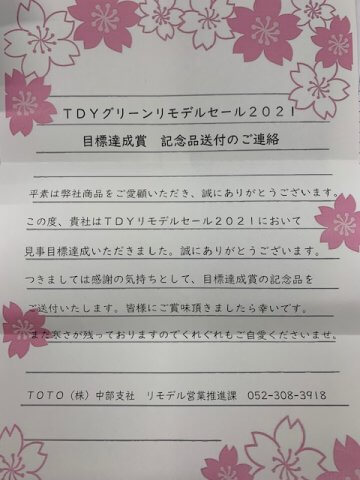 TDYグリーンリモデルセール2021
目標達成賞　記念品送付のご連絡
平素は弊社商品をご愛顧いただき、誠にありがとうございます。
この度、貴社はTDYリモデルセール2021において
見事目標達成いただきました。誠にありがとうございます。
つきましては感謝の気持ちとして、目標達成賞の記念品を
ご送付いたします。皆様にご賞味頂きましたら幸いです。
また寒さが残っておりますのでくれぐれもご自愛くださいませ。
TOTO（株）中部支社　リモデル営業推進課　052-308-3918